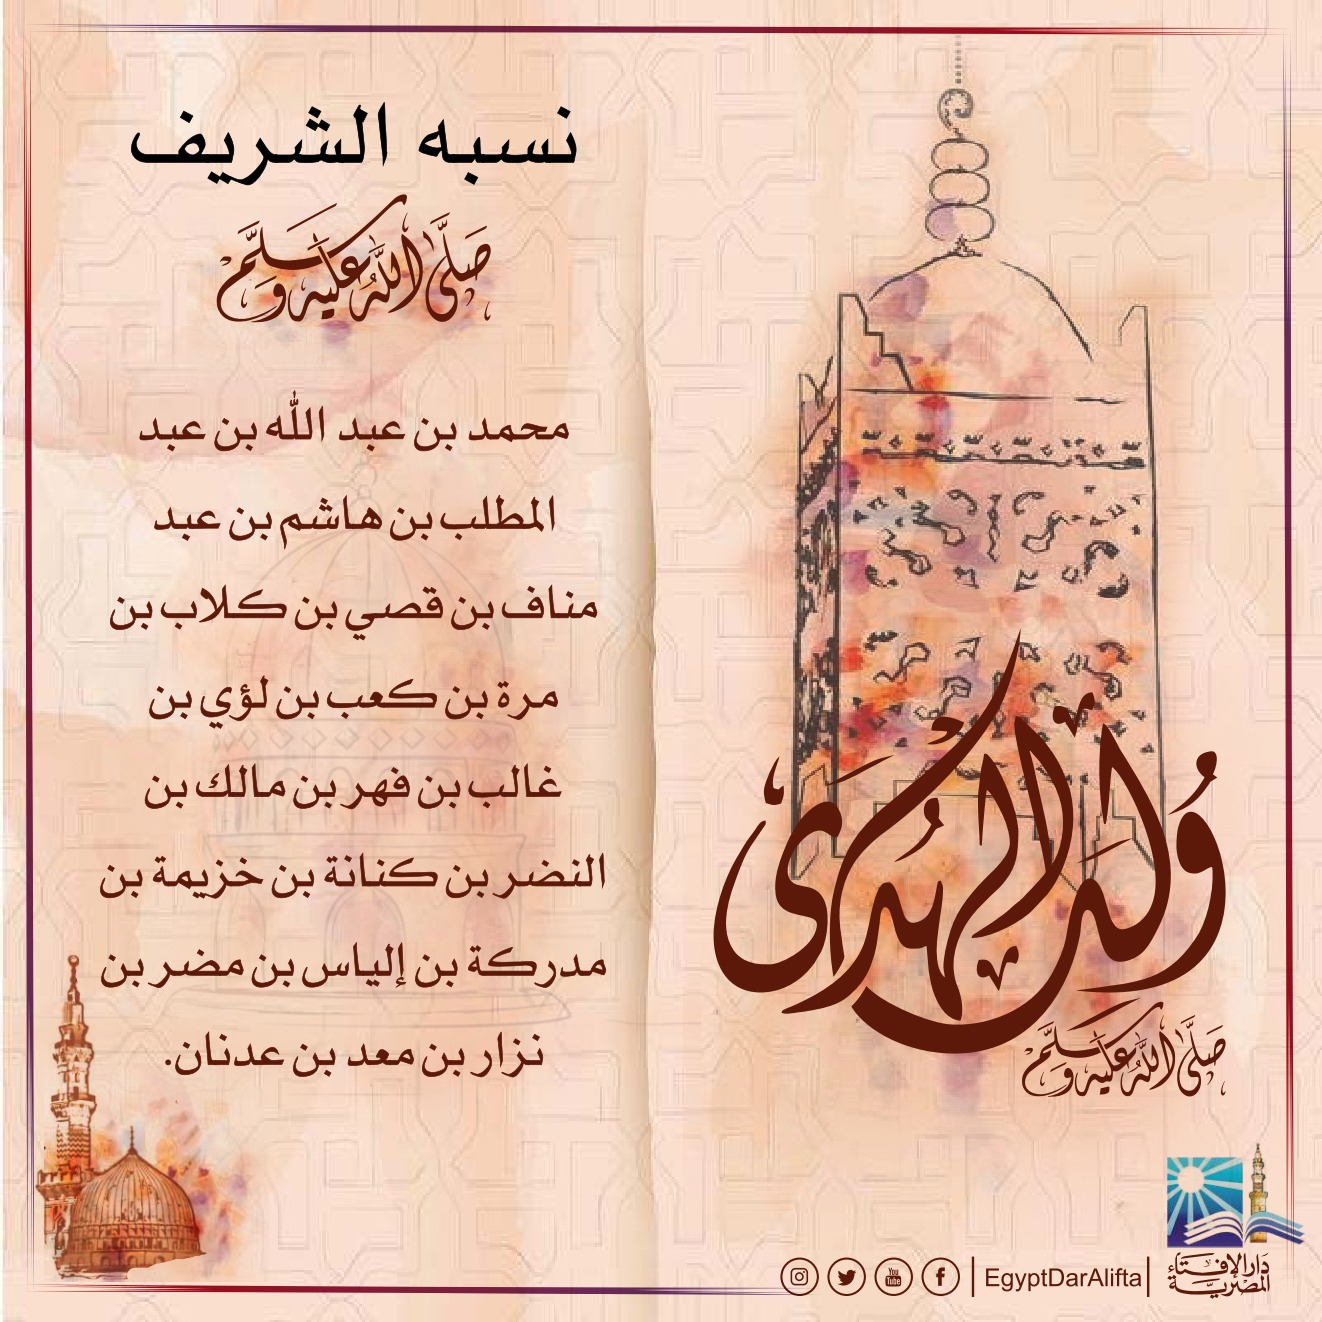 نسبه الشريف
صَلَّى اللَّهُ عَلَيْهِ وَسَلَّمَ
محمد بن عبد الله بن عبد
المطلب بن هاشم بن عبد
مناف بن قصي بن كلاب بن
مرة بن كعب بن لؤي بن
غالب بن فهر بن مالك بن
النضر بن كنانة بن خزيمة بن
مدركة بن إلياس بن مضر بن
نزار بن معد بن عدنان.
وُلد الهُدى
صَلَّى اللَّهُ عَلَيْهِ وَسَلَّمَ
EgyptDarAlifta
You Tube
دَارُ الإِفْتَاءِ
المِصْرِيَّة